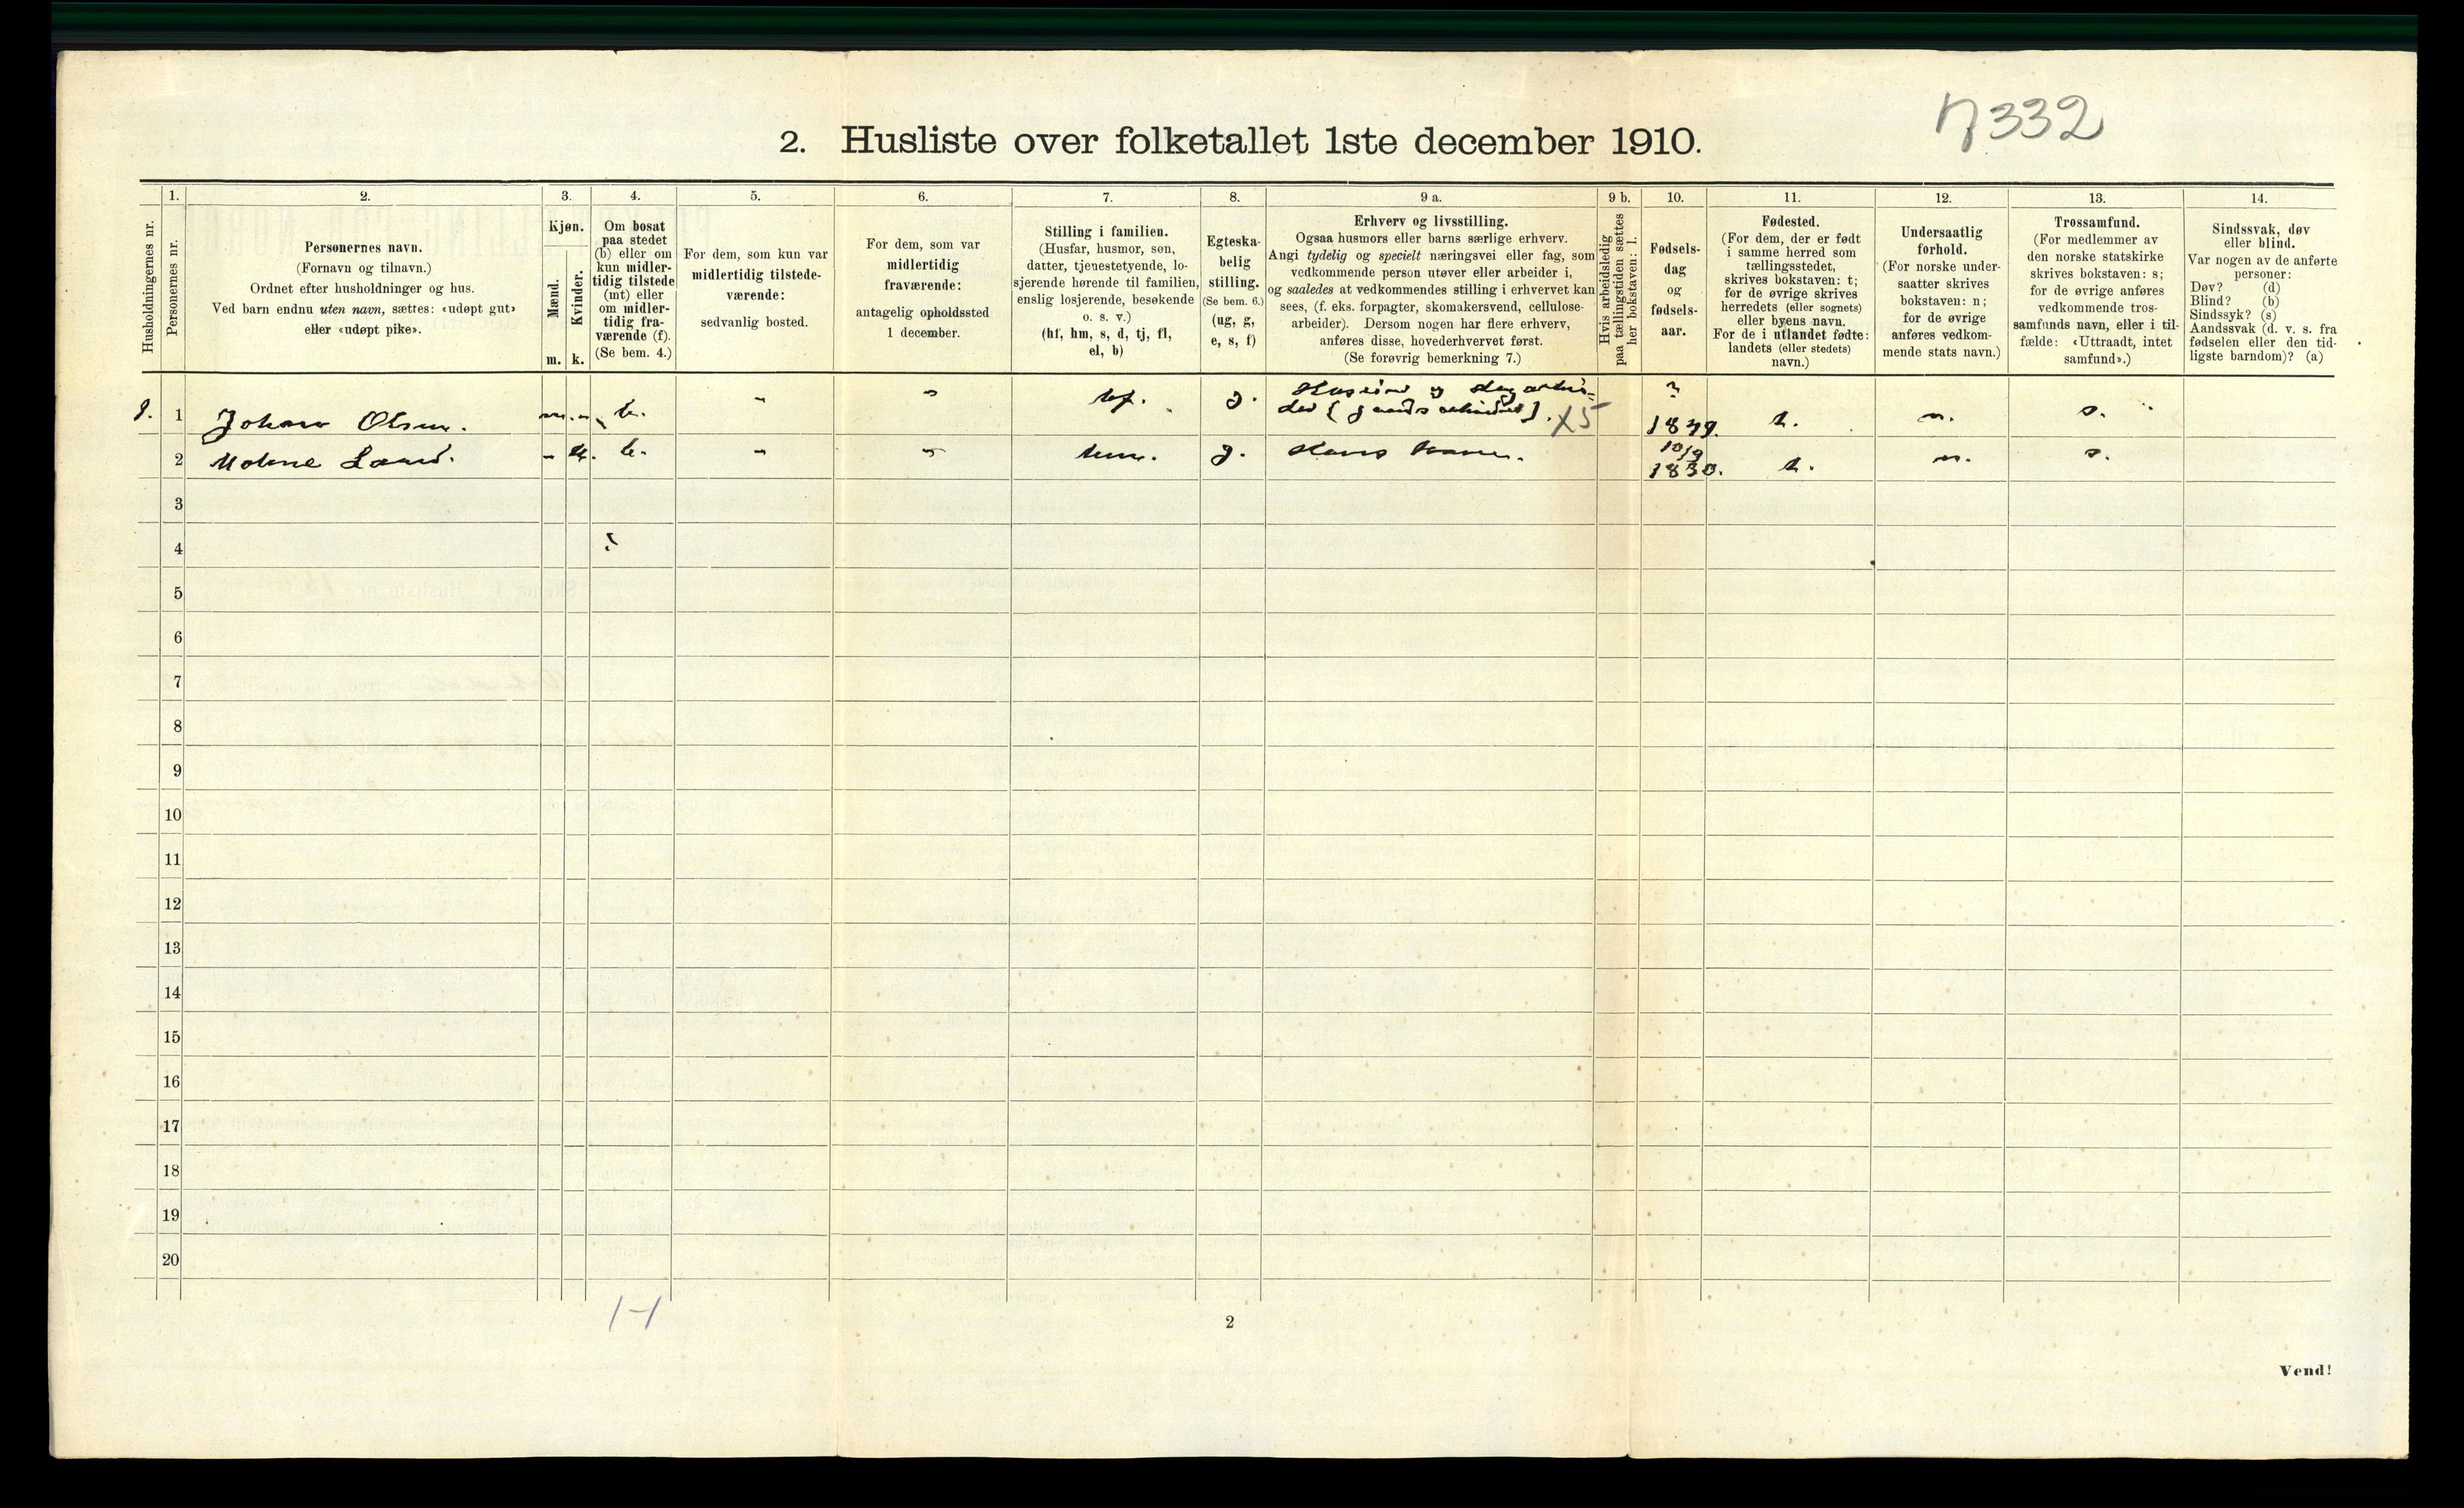 n 332
2. Husliste over folketallet 1ste december 1910.
Husholdningernes nr.
1.
Personernes nr.
2.
Personernes navn.
(Fornavn og tilnavn.)
Ordnet efter husholdninger og hus.
Ved barn endnu uten navn, sættes: «udøpt gut»
eller «udøpt pike».
3.
Kjøn.
Mænd.
m.
Kvinder.
k.
4.
Om bosat
paa stedet
(b) eller om
kun midler-
tidig tilstede
(mt) eller
om midler-
tidig fra-
værende (f).
(Se bem. 4.)
5.
For dem, som kun var
midlertidig tilstede-
værende:
sedvanlig bosted.
6.
For dem, som var
midlertidig
fraværende:
antagelig opholdssted
1 december.
7.
Stilling i familien.
(Husfar, husmor, søn,
datter, tjenestetyende, lo-
sjerende hørende til familien,
enslig losjerende, besøkende
o. s. v.)
(hf, hm, s, d, tj, fl,
el, b)
8.
Egteska-
belig
stilling.
(Se bem. 6.)
(ug, g,
e, s, f)
9 a.
Erhverv og livsstilling.
Ogsaa husmors eller barns særlige erhverv.
Angi tydelig og specielt næringsvei eller fag, som
vedkommende person utøver eller arbeider i,
og saaledes at vedkommendes stilling i erhvervet kan
sees, (f. eks. forpagter, skomakersvend, cellulose-
arbeider). Dersom nogen har flere erhverv,
anføres disse, hovederhvervet først.
(Se forøvrig bemerkning 7.)
9 b.
Hvis arbeidsledig
paa tællingstiden sættes
her bokstaven: l.
10.
Fødsels-
dag
og
fødsels-
aar.
11.
Fødested.
(For dem, der er født
i samme herred som
tællingsstedet,
skrives bokstaven: t;
for de øvrige skrives
herredets (eller sognets)
eller byens navn.
For de i utlandet fødte:
landets (eller stedets)
navn.)
12.
Undersaatlig
forhold.
(For norske under-
saatter skrives
bokstaven: n;
for de øvrige
anføres vedkom-
mende stats navn.)
13.
Trossamfund.
(For medlemmer av
den norske statskirke
skrives bokstaven: s;
for de øvrige anføres
vedkommende tros-
samfunds navn, eller i til-
fælde: «Uttraadt, intet
samfund».)
14.
Sindssvak, døv
eller blind.
Var nogen av de anførte
personer:
Døv? (d)
Blind? (b)
Sindssyk? (s)
Aandssvak (d. v. s. fra
fødselen eller den tid-
ligste barndom)? (a)
1. 1 Johan Olsen. m. - b. - - hf. g. X5 ? t. n. s.
2 - k. b. - - hm. g. Hans kone. 10/9 t. n. s.
3
4
5
6
7
8
9
10
11
12
13
14
15
16
17
18
19
20
1-1
2
Vend!